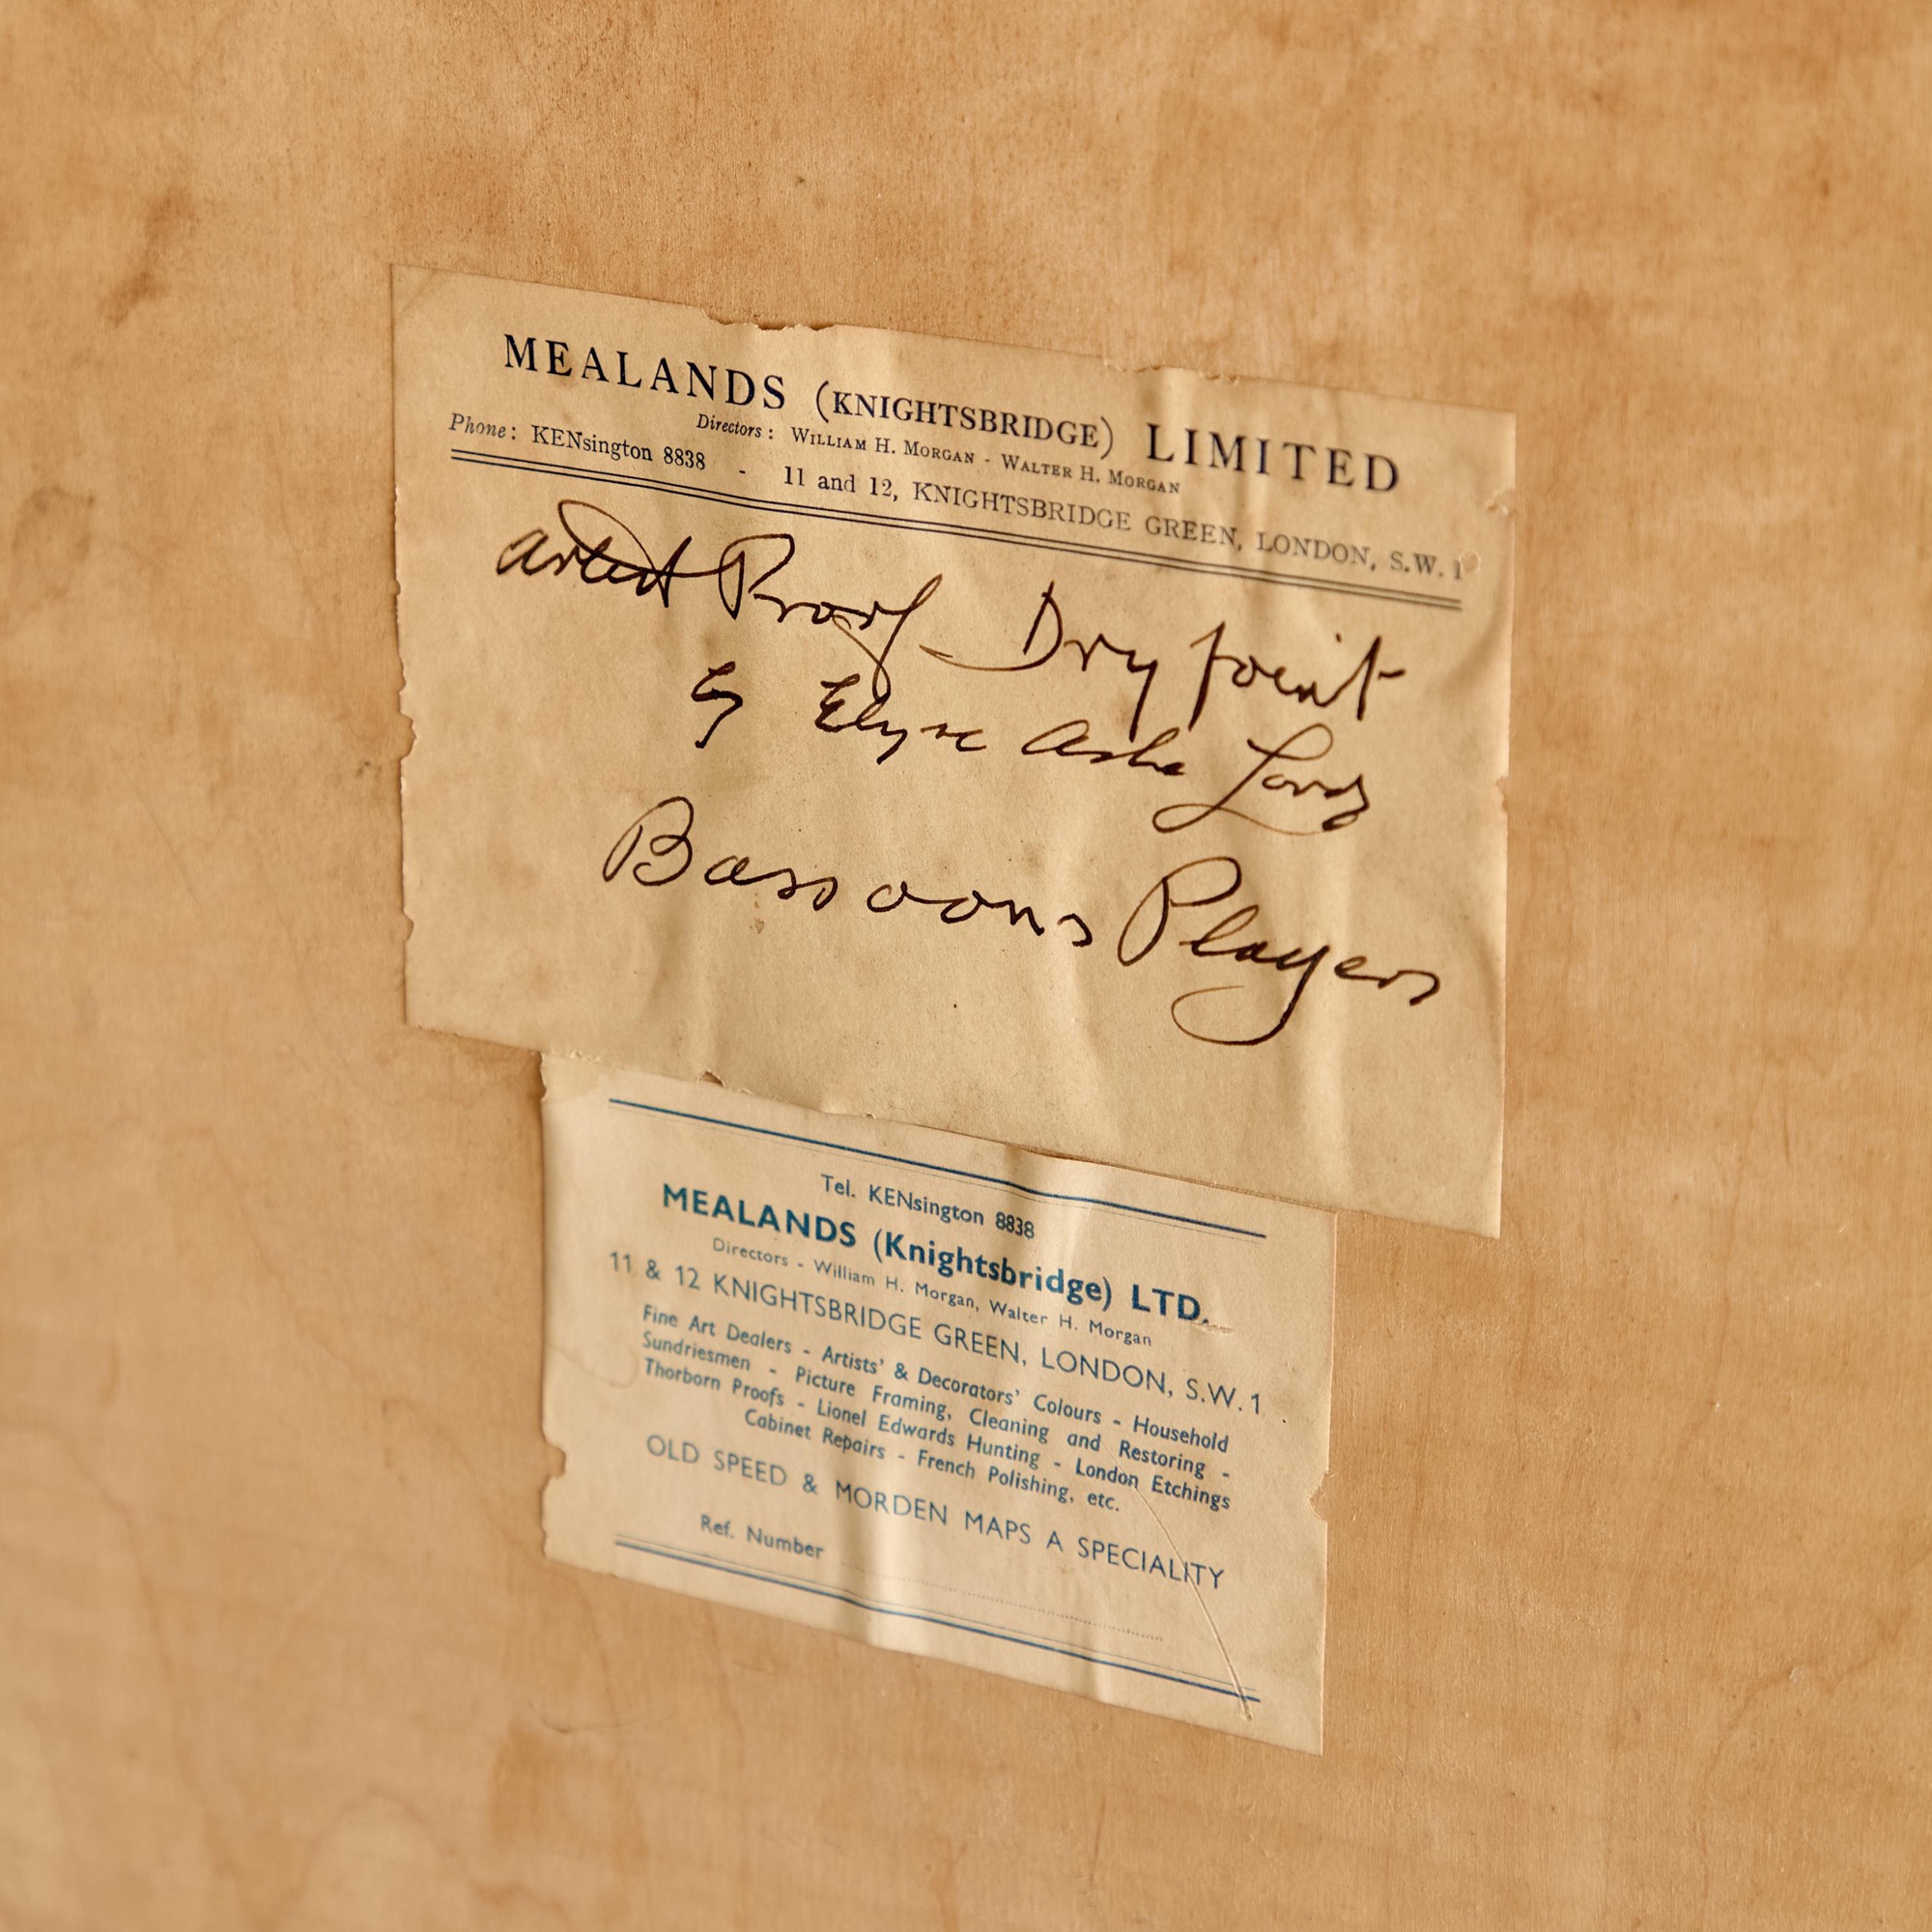 MEALANDS (KNIGHTSBRIDGE) LIMITED
Directors: WILLIAM H. MORGAN - WALTER H. MORGAN
Phone: KENsington 8838 - 11 and 12, KNIGHTSBRIDGE GREEN, LONDON, S.W. 1
Artist Proof - Dry point
by Elyse Ashe Lord
Bassoons Players
Tel. KENsington 8838
MEALANDS (Knightsbridge) LTD.
Directors - William H. Morgan, Walter H. Morgan
11 & 12 KNIGHTSBRIDGE GREEN, LONDON, S.W.1
Fine Art Dealers - Artists' & Decorators' Colours - Household
Sundriesmen - Picture Framing, Cleaning and Restoring -
Thorborn Proofs - Lionel Edwards Hunting - London Etchings
Cabinet Repairs - French Polishing, etc.
OLD SPEED & MORDEN MAPS A SPECIALITY
Ref. Number